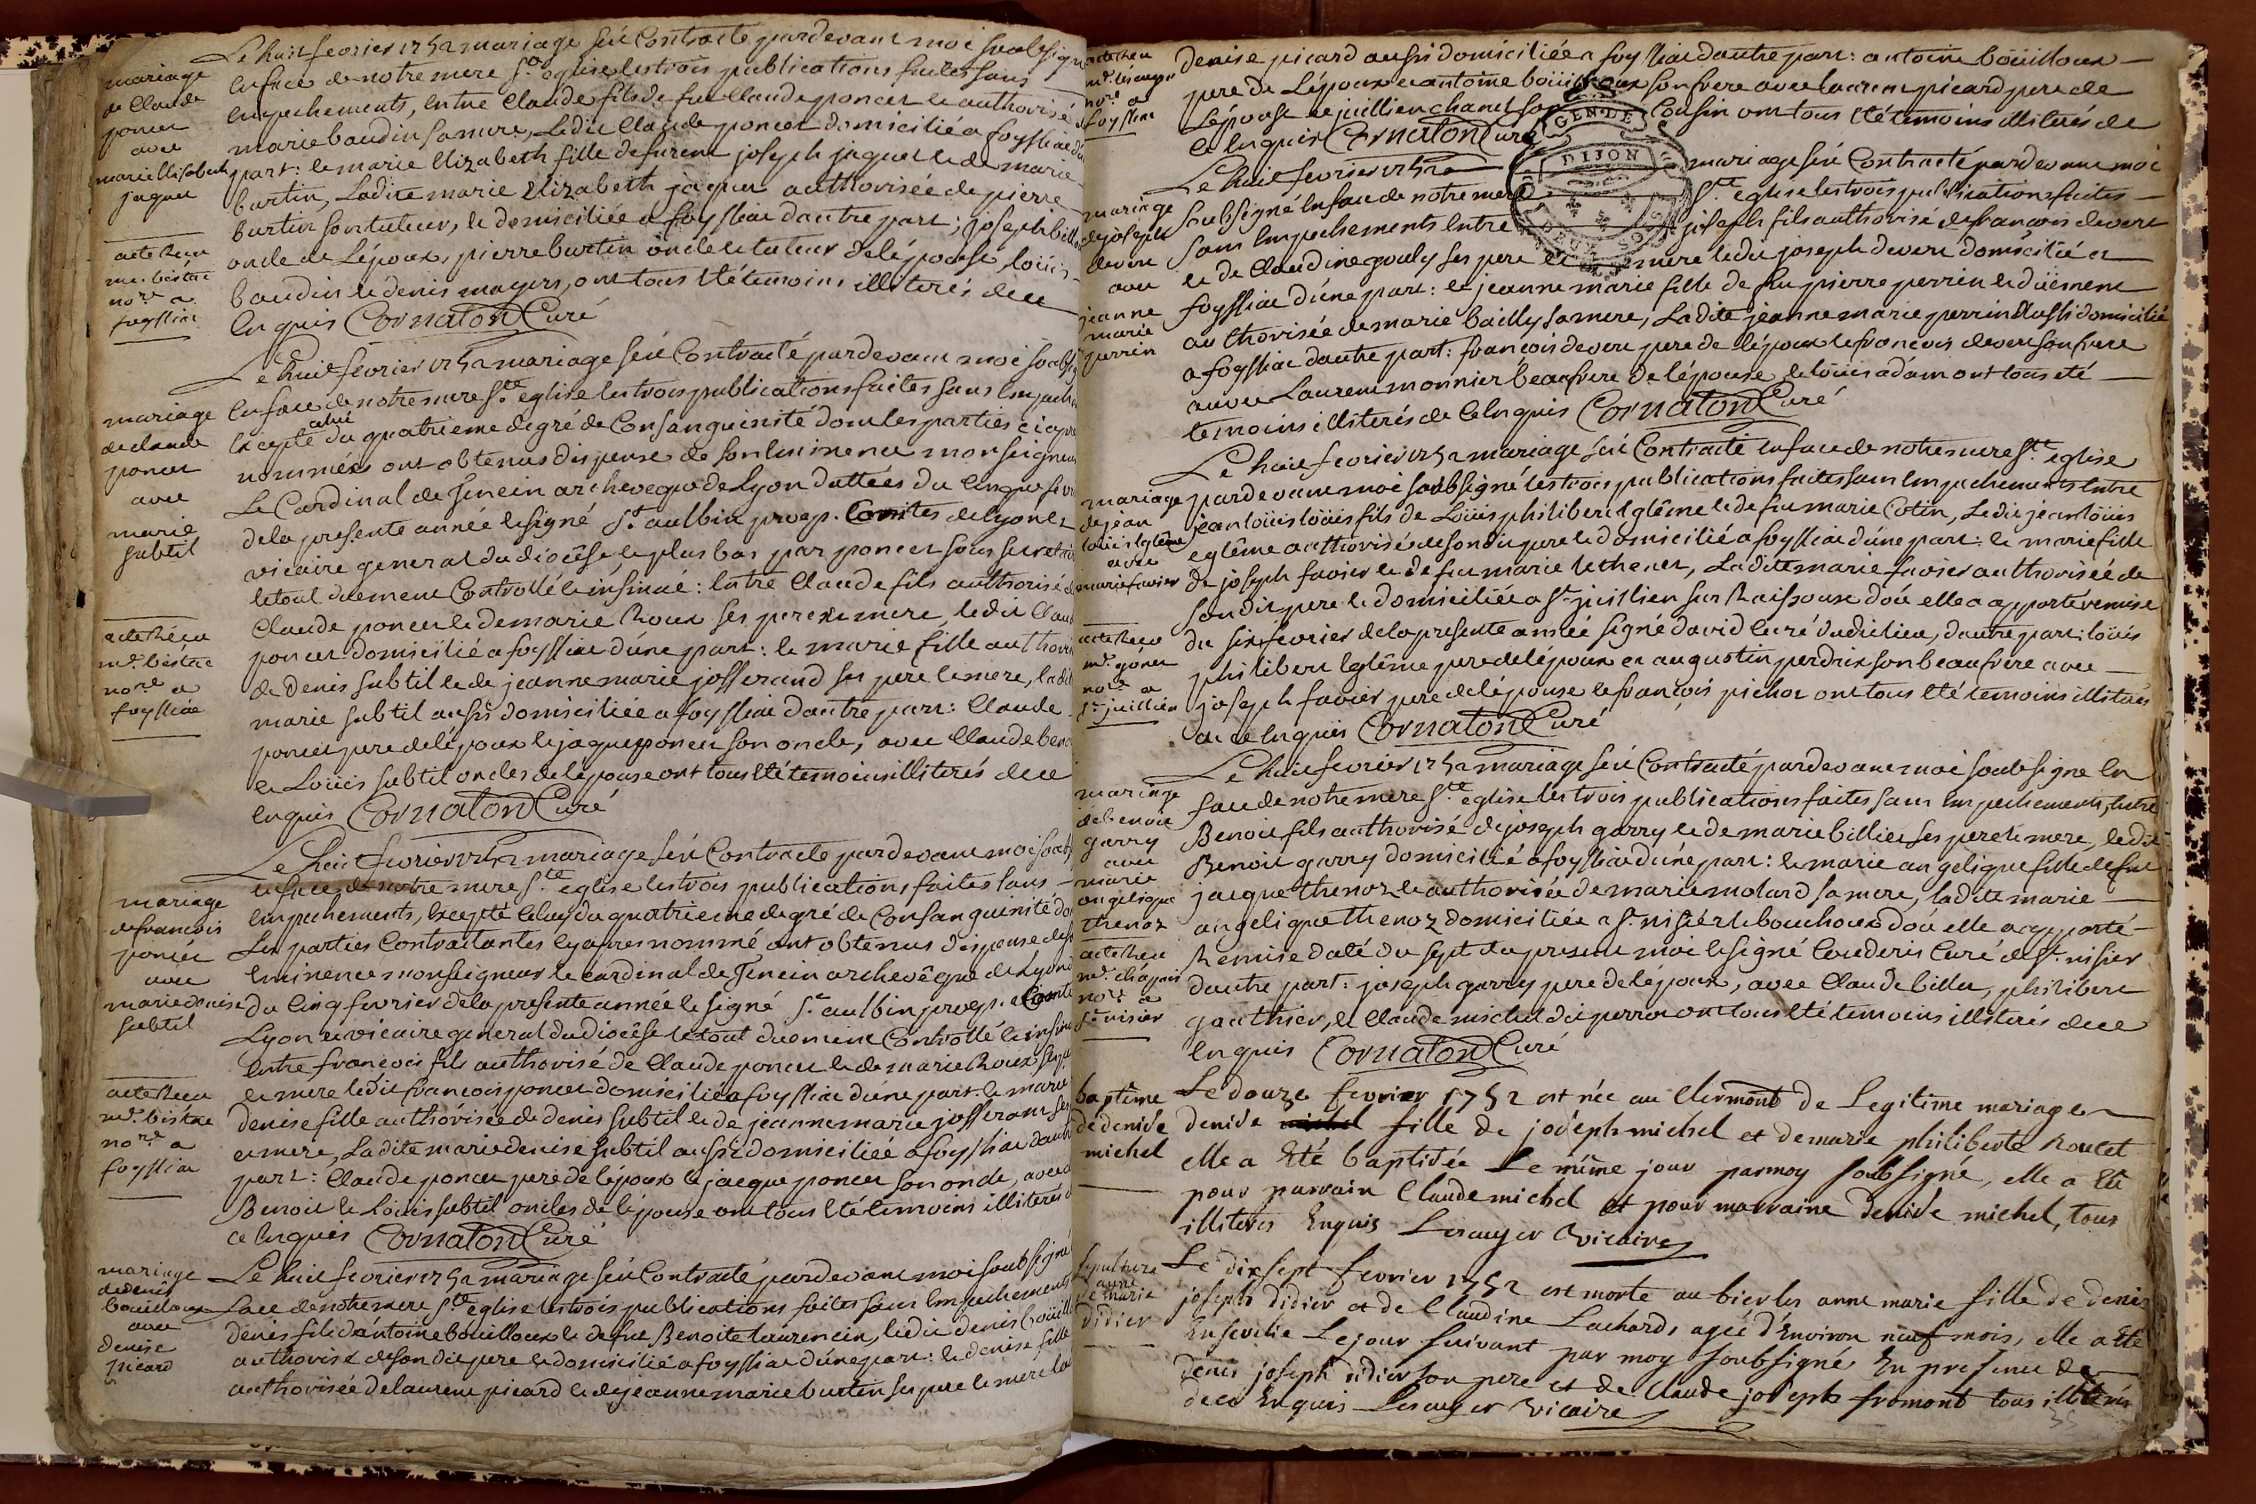 Le huit fevrier 1752 mariage fut Contracté pardevant moi soubsigné
mariage
de Claude
poncet
avec
marie Elisabeth
jaquet
enface de notre mere Ste eglise les trois publications faites sans
empechements, Entre Claude fils de feu Claude poncet et authorisé de
marie baudin sa mere, Ledit Claude poncet domicilié a foyssiat d'une
part: et marie Elizabeth fille defunt joseph jaquet et de marie
burtin, Ladite marie Elizabeth jaquet authorisée de pierre
burtin son tuteur, et domiciliée a foyssiat dautre part; joseph
oncle de L'époux, pierre burtin oncle et tuteur de lépouse, loüis
baudin et denis mayers, ont tous été temoins illiterés de ce
Enquis Cornaton Curé
acte Receu
me. bestne
nore a
foyssiat
Le huit fevrier 1752 mariage fut Contracté pardevant moi soubsig
mariage
de claude
poncet
avec
marie
subtil
enface de notre mere Ste eglise les trois publications faites sans empeche
Excepté celui du quatrieme degré de Consanguinité dont les parties ci apre
nommées ont obtenus dispense de son Eminence monseigneur
Le Cardinal de Tencin archevêque de Lyon dattées du cinq fevr
de la presente année et signé St aulbin prvep. Comtes de Lyon et
vicaire general du diocêse, et plus bas par poncet sous secretaire
le tout duement Controllé et insinué: Entre Claude fils authorisé de
Claude poncet et de marie Roux ses pere et mere, ledit Claude
poncet domicilié a foyssiat d'une part: et marie fille authorisée
de Denis subtil et de jeanne marie josserand ses pere et mere, ladite
marie subtil aussi domiciliée a foyssiat dautre part: Claude
poncet pere de lépoux et jaque poncet son oncle, avec Claude
et Loüis subtil oncles de lépouse ont tous été temoins illiterés de ce
Enquis Cornaton Curé
acte Récu
me. bestne
nore a
foyssiat
Le huit fevrier 1752 mariage fut Contracté pardevant moi soubs
mariage
de francois
poncet
avec
marie denise
subtil
enface de notre mere Ste eglise les trois publications faites sans
Empechements, Excepté Celuy du quatrieme degré de Consanguinité dont
Les parties Contractantes cy apres nommé ont obtenus dispense de son
Eminence monseigneur le Cardinal de Tencin archevêque de Lyon
du Cinq fevrier de la presente année et signé St aulbin prvep. Comte
Lyon et vicaire general du diocêse le tout duement Controllé et insinué
Entre francois fils authorisé de Claude poncet et de marie Roux ses pere
et mere ledit francois poncet domicilié a foyssiat d'une part: et marie
denise fille authorisée de denis subtil et de jeanne marie josserand ses pere
et mere, Ladite marie denise subtil aussi domiciliée a foyssiat dautre
part: Claude poncet pere de lépoux et jacque poncet son oncle, avec
Benoit et Loüis subtil oncles de lépouse ont tous été temoins illiterés de
ce Enquis Cornaton Curé
acte Receu
me. bestne
nore a
foyssiat
Le huit fevrier 1752 mariage fut Contracté pardevant moi soubsigné
mariage
de denis
bouilloux
avec
denise
picard
face de notre mere Ste eglise les trois publications faites sans Empechements
denis fils d'antoine bouilloux et de feu Benoite laurencin, ledit denis boüill
authorisé de son dit pere et domicilié a foyssiat d'une part: et denise fille
authorisée de laurent picard et de jeanne marie burtin ses pere et mere la
acte Receu
nore a
foyssiat
denise picard aussi domiciliée a foyssiat dautre part: antoine boüilloux
pere de Lépoux et antoine boüilloux son frere avec laurent picard pere de
Lépouse et juillien chanel son Cousin ont tous été temoins illiterés de
ce Enquis Cornaton Curé
GEN. DE
DIJON
DEUX SOLS
Le huit fevrier 1752 mariage fut Contracté pardevant moi
mariage
de joseph
devere
avec
jeanne
marie
perrin
soubsigné Enface de notre mere Ste eglise les trois publications faites
sans Empechements Entre joseph fils authorisé de francois devere
et de Claudine pouly ses pere et mere ledit joseph devere domicilié a
foyssiat d'une part: et jeanne marie fille de feu pierre perrin et düement
authorisée de marie bailly sa mere, Ladite jeanne marie perrin Aussi domicilié
a foyssiat dautre part: françois devere pere de lépoux et francois devere son frere
avec Laurent monnier beaufrere de lépouse et loüis adam ont tous eté
temoins illiterés de ce Enquis Cornaton Curé
Le huit fevrier 1752 mariage fut Contracté enface de notre mere Ste eglise
mariage
de jean
loüis Eglême
avec
marie favier
pardevant moi soubsigné les trois publications faites sans Empechements Entre
jean loüis loüis fils de Loüis philibert Eglême et de feu marie Cotin, Ledit jean loüis
eglême authorisé de son dit pere et domicilié a foyssiat d'une part: et marie fille
de joseph favier et de feu marie Lethenet, Ladite marie favier authorisée de
son dit pere et domiciliée a St juillien sur Raissouse doù elle a apporté remise
du six fevrier de la presente année signé david Curé dudit lieu, dautre part: loüis
philibert Eglême pere de lépoux et augustin perdrix son beaufrere avec
joseph favier pere de lépouse et françois pichot ont tous été temoins illiterés
de ce Enquis Cornaton Curé
acte Receu
me. gonet
nore a
St juillien
Le huit fevrier 1752 mariage fut Contracté pardevant moi soubsigné En
mariage
de benoit
garry
avec
marie
angelique
thenoz
face de notre mere Ste eglise les trois publications faites sans Empechements, Entre
Benoit fils authorisé de joseph garry et de marie billiet ses pere et mere, ledit
Benoit garry domicilié a foyssiat d'une part: et marie angelique fille de feu
jacque thenoz et authorisée de marie molard sa mere, ladite marie
angelique thenoz domiciliée a St nisier le bouchoux doù elle a apporté
Remise daté du sept du present moi et signé Couderis Curé de St nisier
dautre part: joseph garry pere de lépoux, avec Claude billet, philibert
gauthier, et Claude michel dit perrou ont tous été temoins illiterés de ce
Enquis Cornaton Curé
acte Receu
me. chapuis
nore a
St nisier
baptême
de denise
michel
Le douze fevrier 1752 est née au Clermont de Legitime mariage
denise michel fille de joseph michel et de marie philiberte Roulet
elle a Eté baptisée Le même jour par moy soubsigné, elle a Eu
pour parrain Claude michel et pour marraine denise michel, tous
illiteres Enquis Lerauyer Vicaire
sepulture
d'anne
marie
didier
Le dixsept fevrier 1752 est morte au bierles anne marie fille de denis
joseph didier et de Claudine Lachard, agée d'Environ neuf mois, elle a Eté
Ensevelie Le jour suivant par moy soubsigné En presence de
denis joseph didier son pere et de Claude joseph fromont tous illiterés
de ce Enquis Lerauyer Vicaire